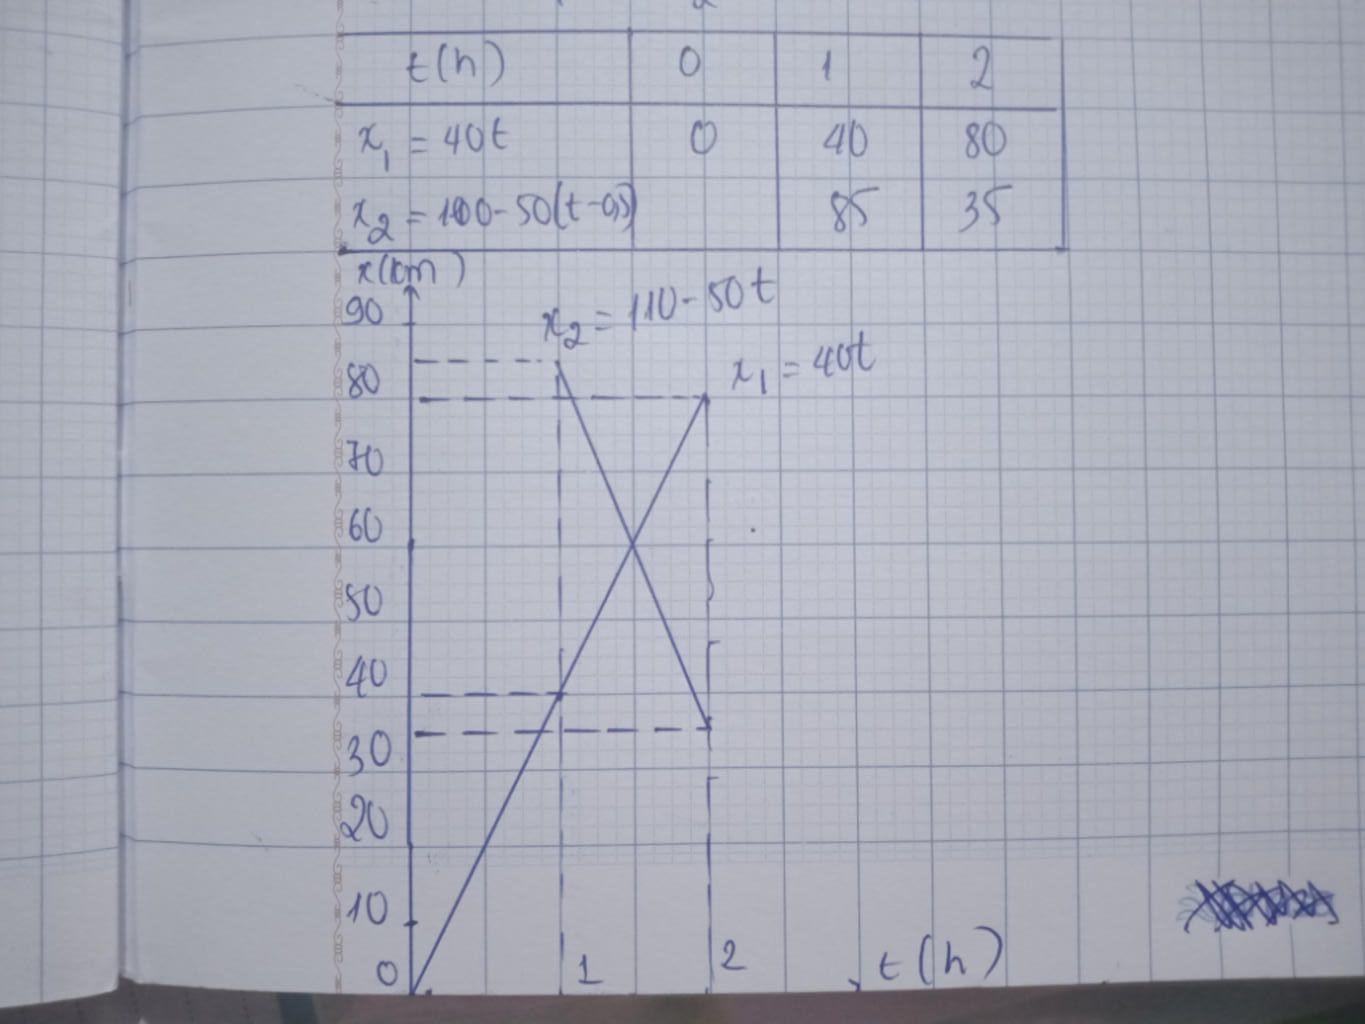 t(h) 0 1 2
x₁ = 40t 0 40 80
x₂ = 110-50(t-0,5) 85 35
x(km)
90
x₂ = 110-50t
80
x₁ = 40t
70
60
50
40
30
20
10
0 1 2 t(h)